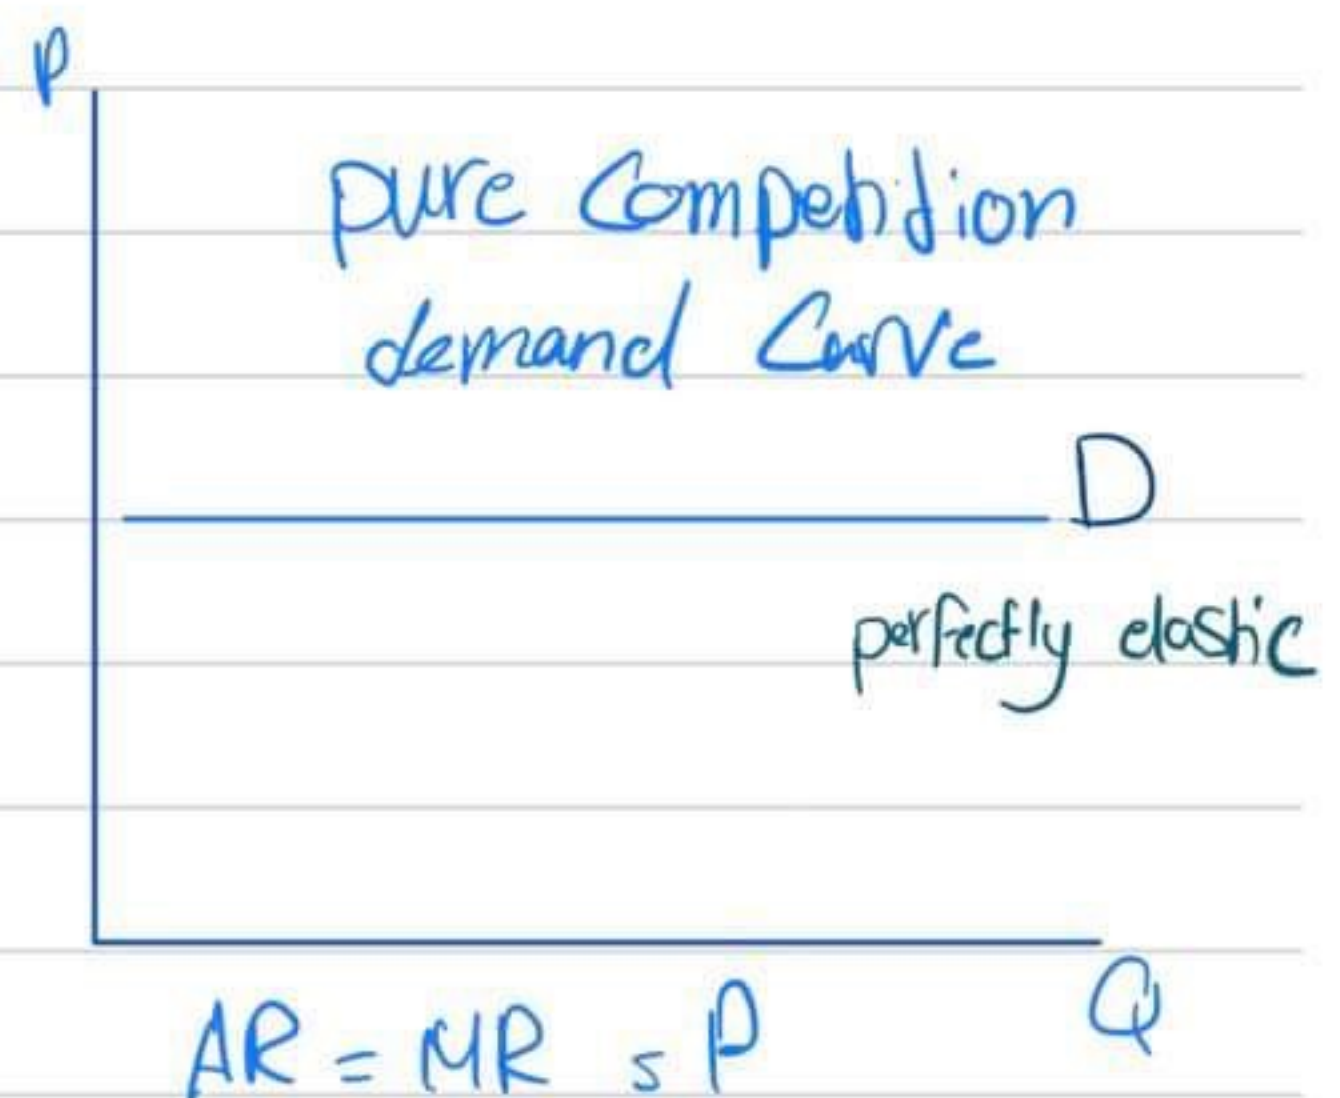 P
pure Competition
demand Curve
D
perfectly elastic
Q
AR = MR = P